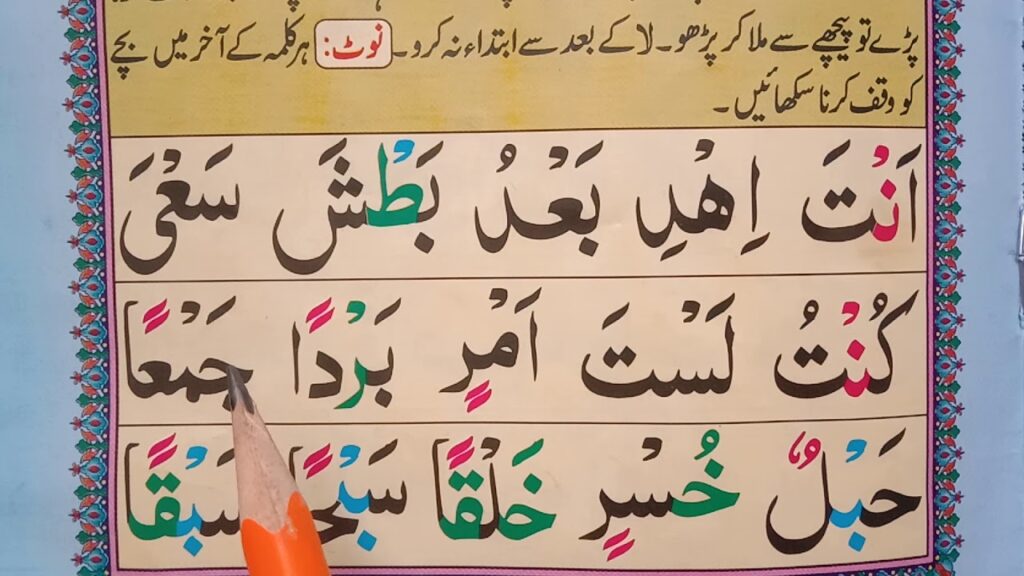 پڑے تو پیچھے سے ملا کر پڑھو۔ لا کے بعد سے ابتداء نہ کرو۔ نوٹ: ہر کلمہ کے آخر میں بچے
کو وقف کرنا سکھائیں۔
اَنْتَ اِهْدِ بَعْدُ بَطْشَ سَعْیَ
كُنْتُ لَسْتَ اَمْرٍ بَرْدًا جَمْعًا
حَبْلٌ خُسْرٍ خَلْقًا سَبْحًا سَبْقًا